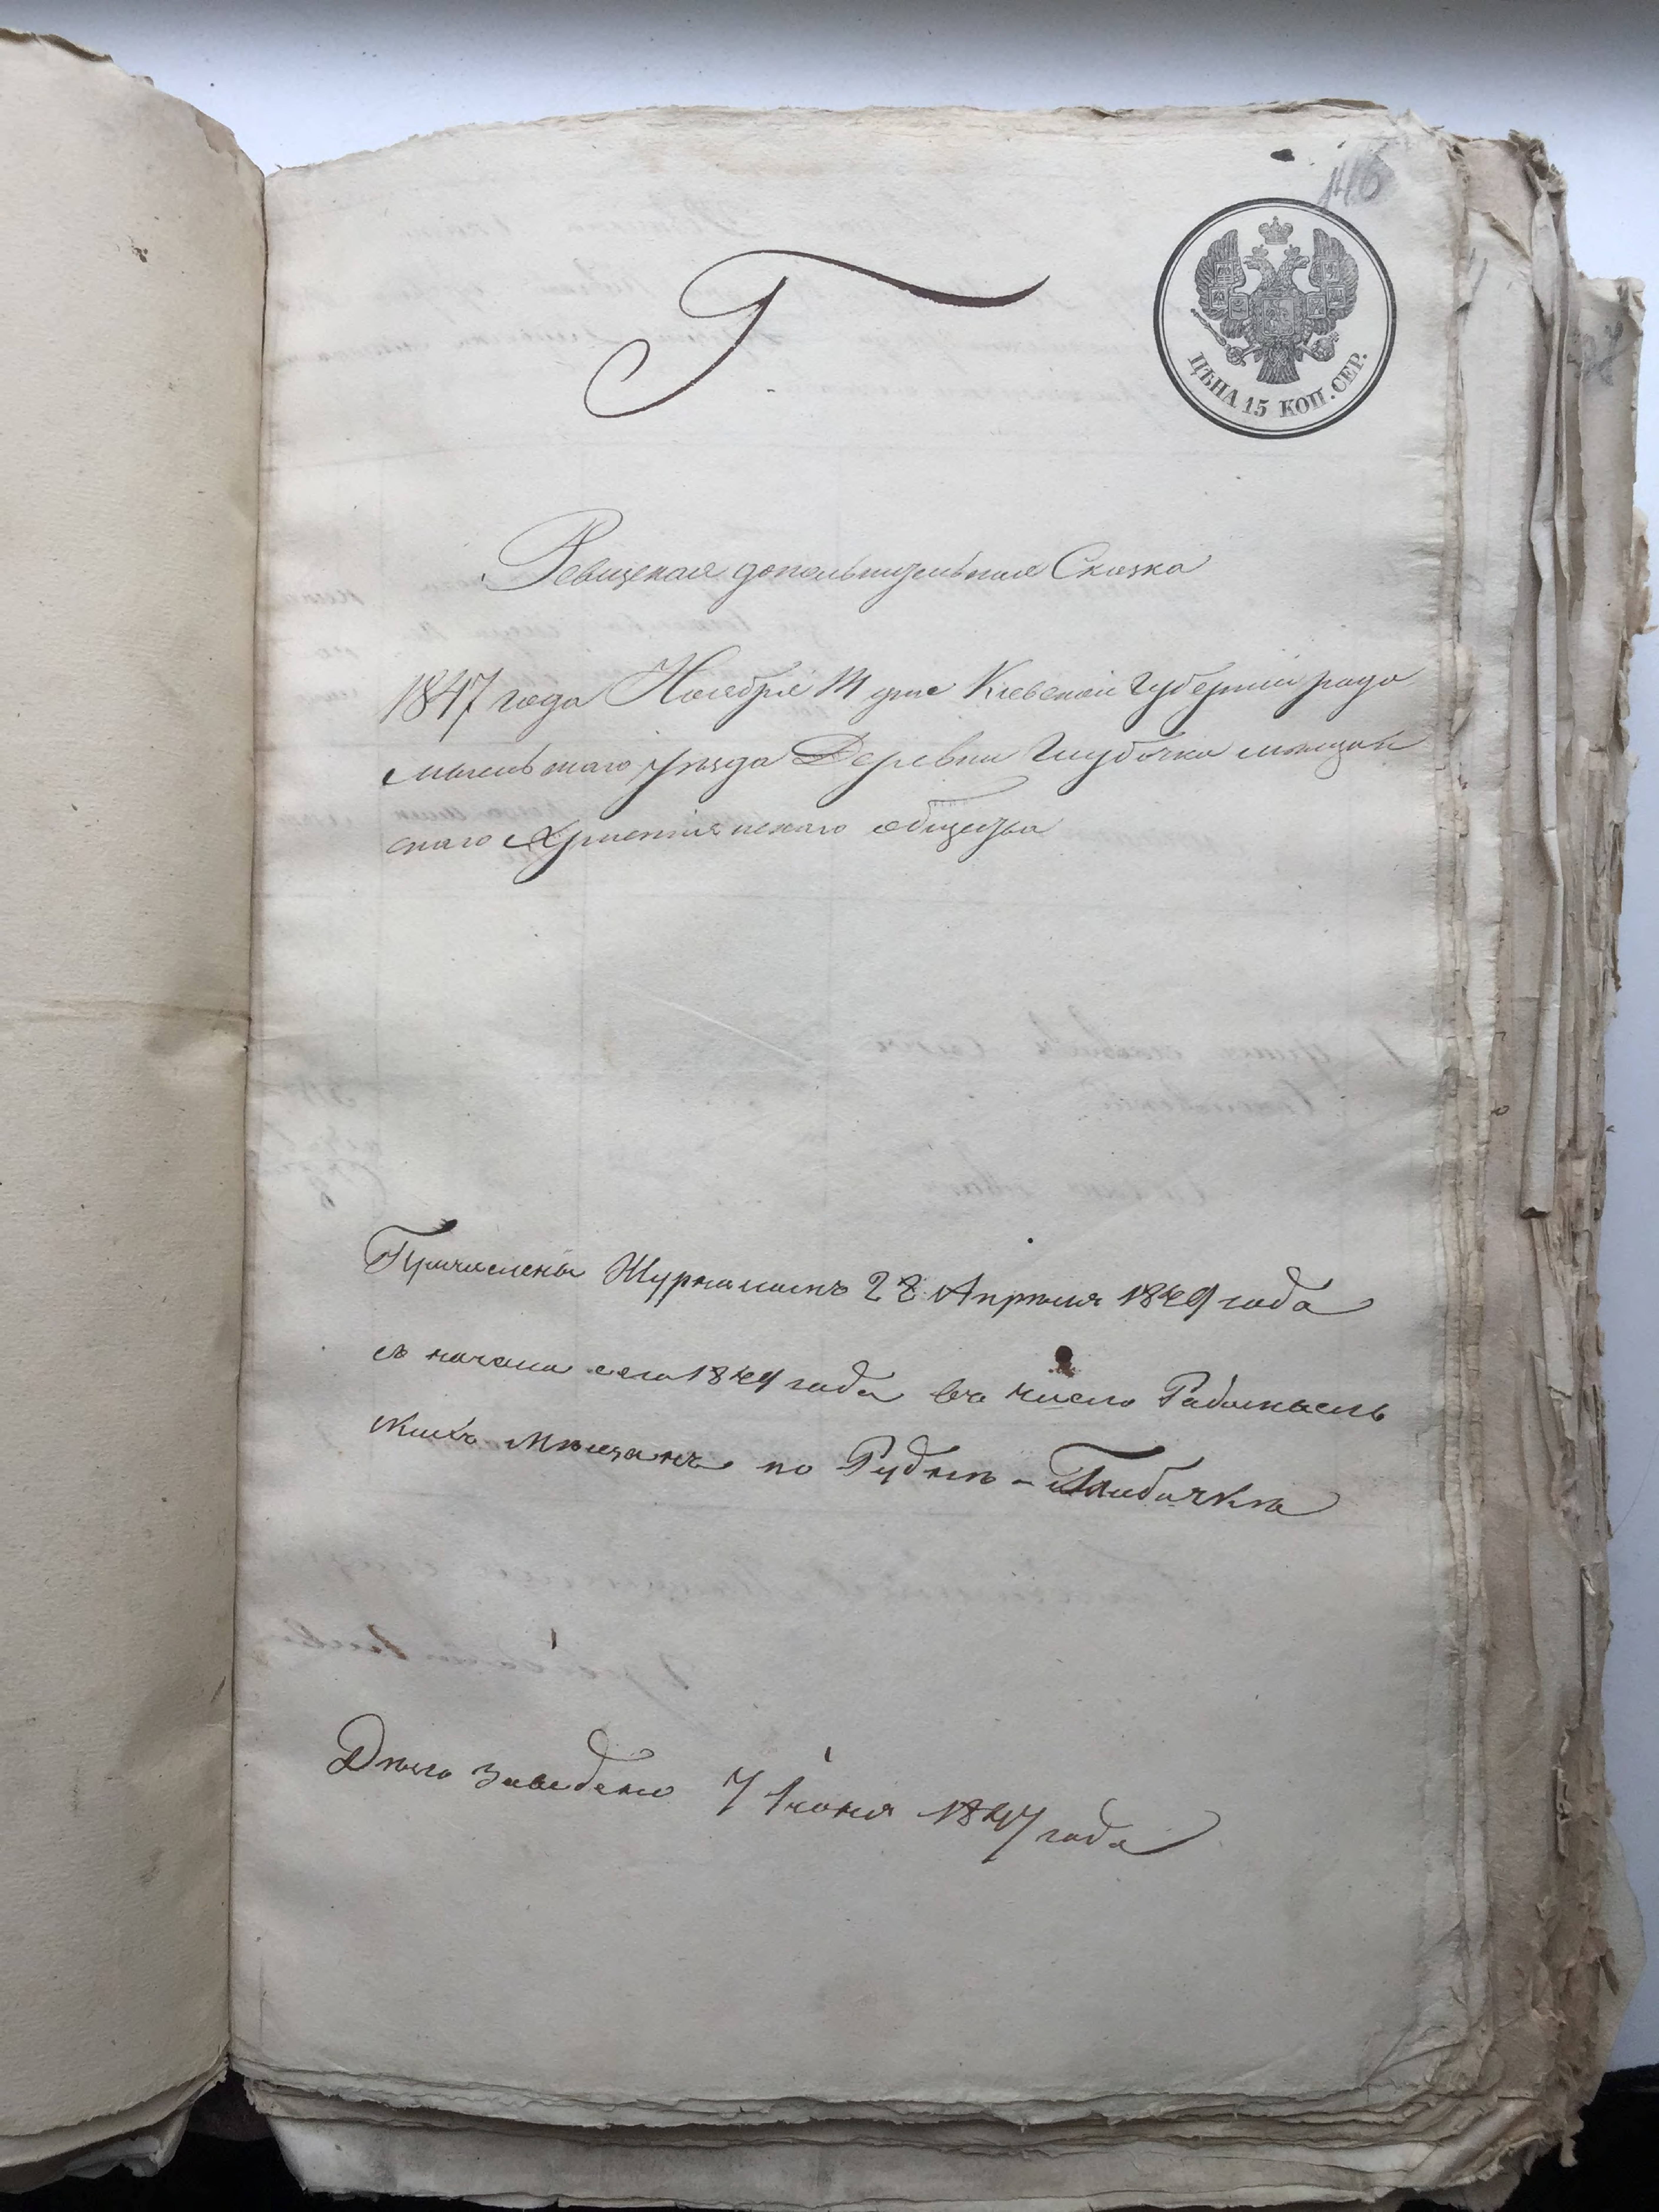 146
Г
ЦѢНА 15 КОП. СЕР.
Ревизская дополнительная Сказка
1847 года Ноября 14 дня Кіевской Губерніи радо
мысльскаго уѣзда Деревни Глубочка мѣщан
скаго Христіянскаго общества
Причислены Журналомъ 28 Апрѣля 1849 года
съ начала сего 1849 года въ число Радомысль
скихъ Мѣщанъ по Рудкѣ-Глибочкѣ
Дѣло заведено 7 Іюня 1847 года